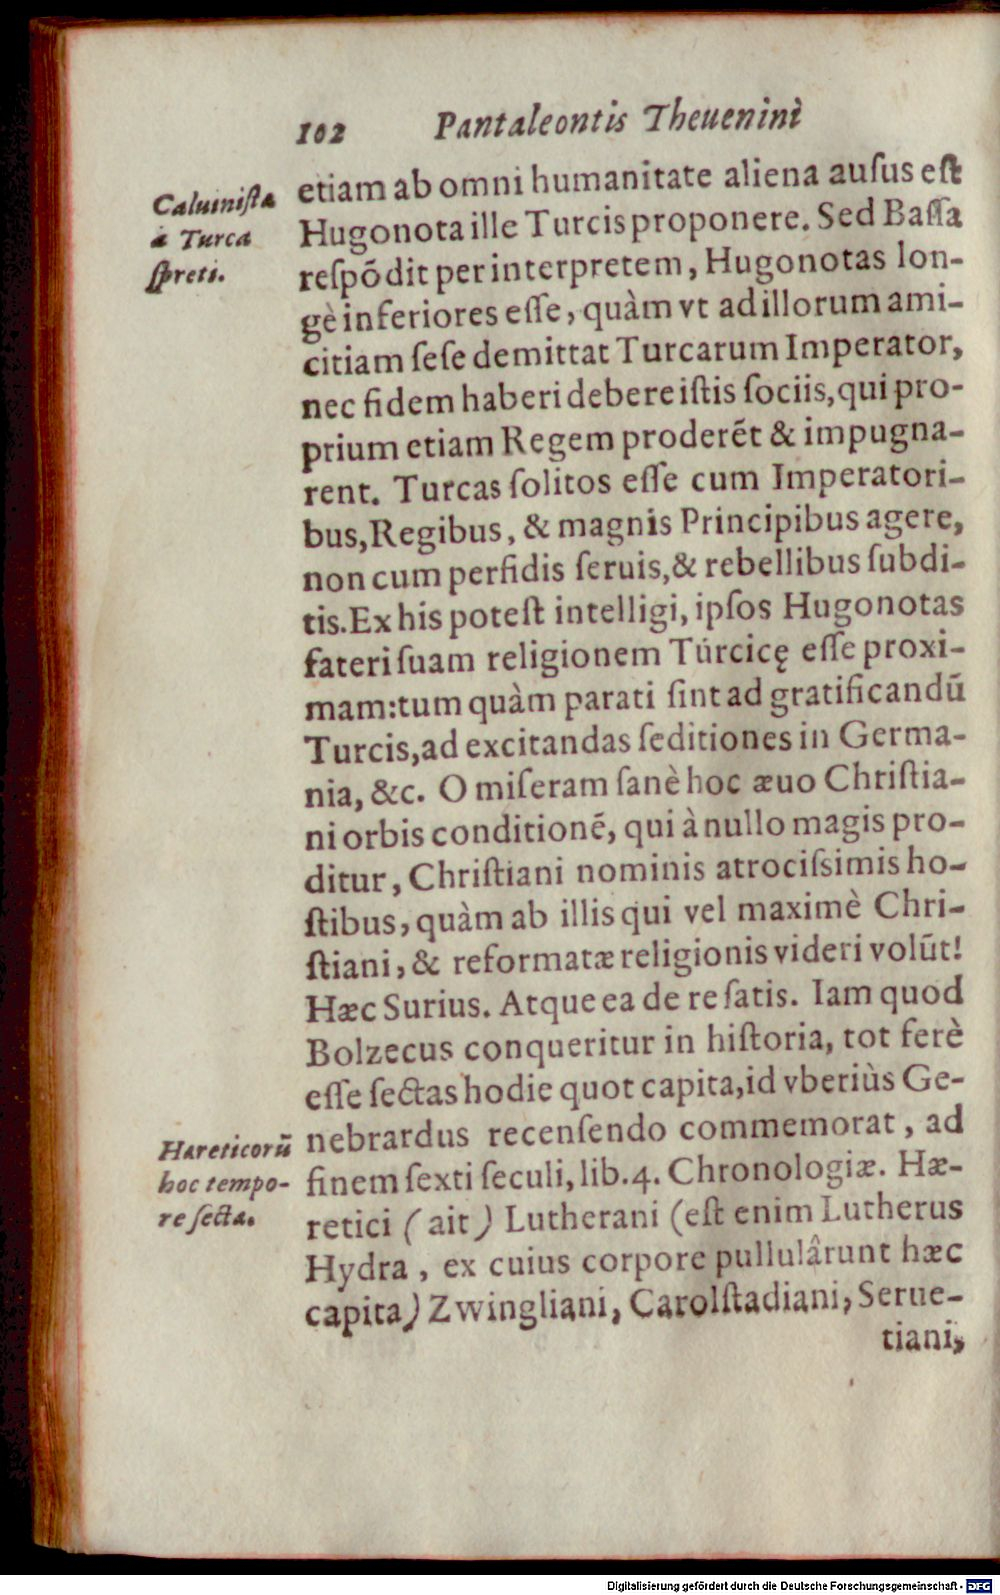 102 Pantaleontis Theuenini
etiam ab omni humanitate aliena auſus eſt
Hugonota ille Turcis proponere. Sed Baſſa
reſpõdit per interpretem, Hugonotas lon-
gè inferiores eſſe, quàm vt ad illorum ami-
citiam ſeſe demittat Turcarum Imperator,
nec fidem haberi debere iſtis ſociis, qui pro-
prium etiam Regem proderẽt & impugna-
rent. Turcas ſolitos eſſe cum Imperatori-
bus, Regibus, & magnis Principibus agere,
non cum perfidis ſeruis, & rebellibus ſubdi-
tis. Ex his poteſt intelligi, ipſos Hugonotas
fateri ſuam religionem Túrcicę eſſe proxi-
mam: tum quàm parati ſint ad gratificandũ
Turcis, ad excitandas ſeditiones in Germa-
nia, &c. O miſeram ſanè hoc æuo Chriſtia-
ni orbis conditionẽ, qui à nullo magis pro-
ditur, Chriſtiani nominis atrociſsimis ho-
ſtibus, quàm ab illis qui vel maximè Chri-
ſtiani, & reformatæ religionis videri volũt!
Hæc Surius. Atque ea de re ſatis. Iam quod
Bolzecus conqueritur in hiſtoria, tot ferè
eſſe ſectas hodie quot capita, id vberiùs Ge-
nebrardus recenſendo commemorat, ad
finem ſexti ſeculi, lib. 4. Chronologiæ. Hæ-
retici (ait) Lutherani (eſt enim Lutherus
Hydra, ex cuius corpore pullulârunt hæc
capita) Zwingliani, Carolſtadiani, Serue-
tiani,
Caluiniſtæ
à Turca
ſpreti.
Hæreticorũ
hoc tempo-
re ſectæ.
Digitalisierung gefördert durch die Deutsche Forschungsgemeinschaft - DFG